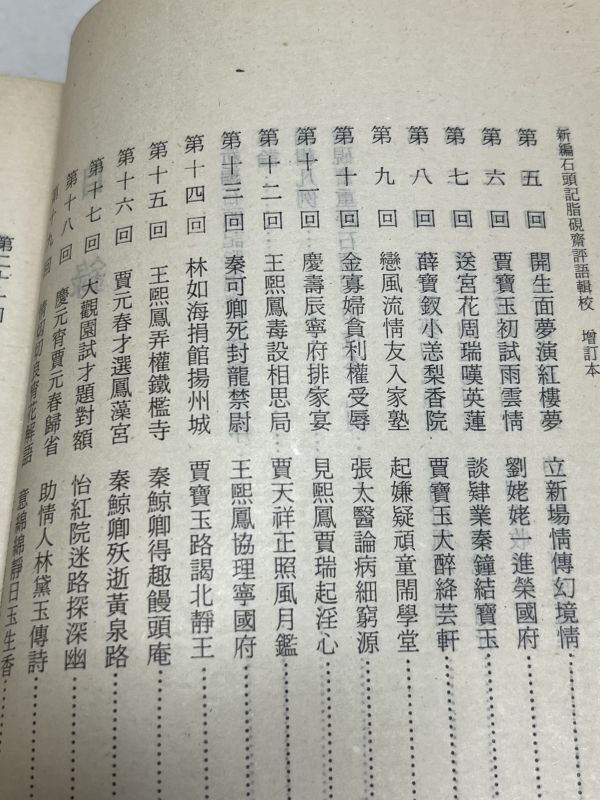 新編石頭記脂硯齋評語輯校 增訂本
第五回 開生面夢演紅樓夢 立新場情傳幻境情
第六回 賈寶玉初試雨雲情 劉姥姥一進榮國府
第七回 送宮花周瑞嘆英蓮 談肄業秦鐘結寶玉
第八回 薛寶釵小恙梨香院 賈寶玉大醉絳芸軒
第九回 戀風流情友入家塾 起嫌疑頑童鬧學堂
第十回 金寡婦貪利權受辱 張太醫論病細窮源
第十一回 慶壽辰寧府排家宴 見熙鳳賈瑞起淫心
第十二回 王熙鳳毒設相思局 賈天祥正照風月鑑
第十三回 秦可卿死封龍禁尉 王熙鳳協理寧國府
第十四回 林如海捐館揚州城 賈寶玉路謁北靜王
第十五回 王熙鳳弄權鐵檻寺 秦鯨卿得趣饅頭庵
第十六回 賈元春才選鳳藻宮 秦鯨卿殀逝黃泉路
第十七回 大觀園試才題對額 怡紅院迷路探深幽
第十八回 慶元宵賈元春歸省 助情人林黛玉傳詩
第十九回 情切切良宵花解語 意綿綿靜日玉生香